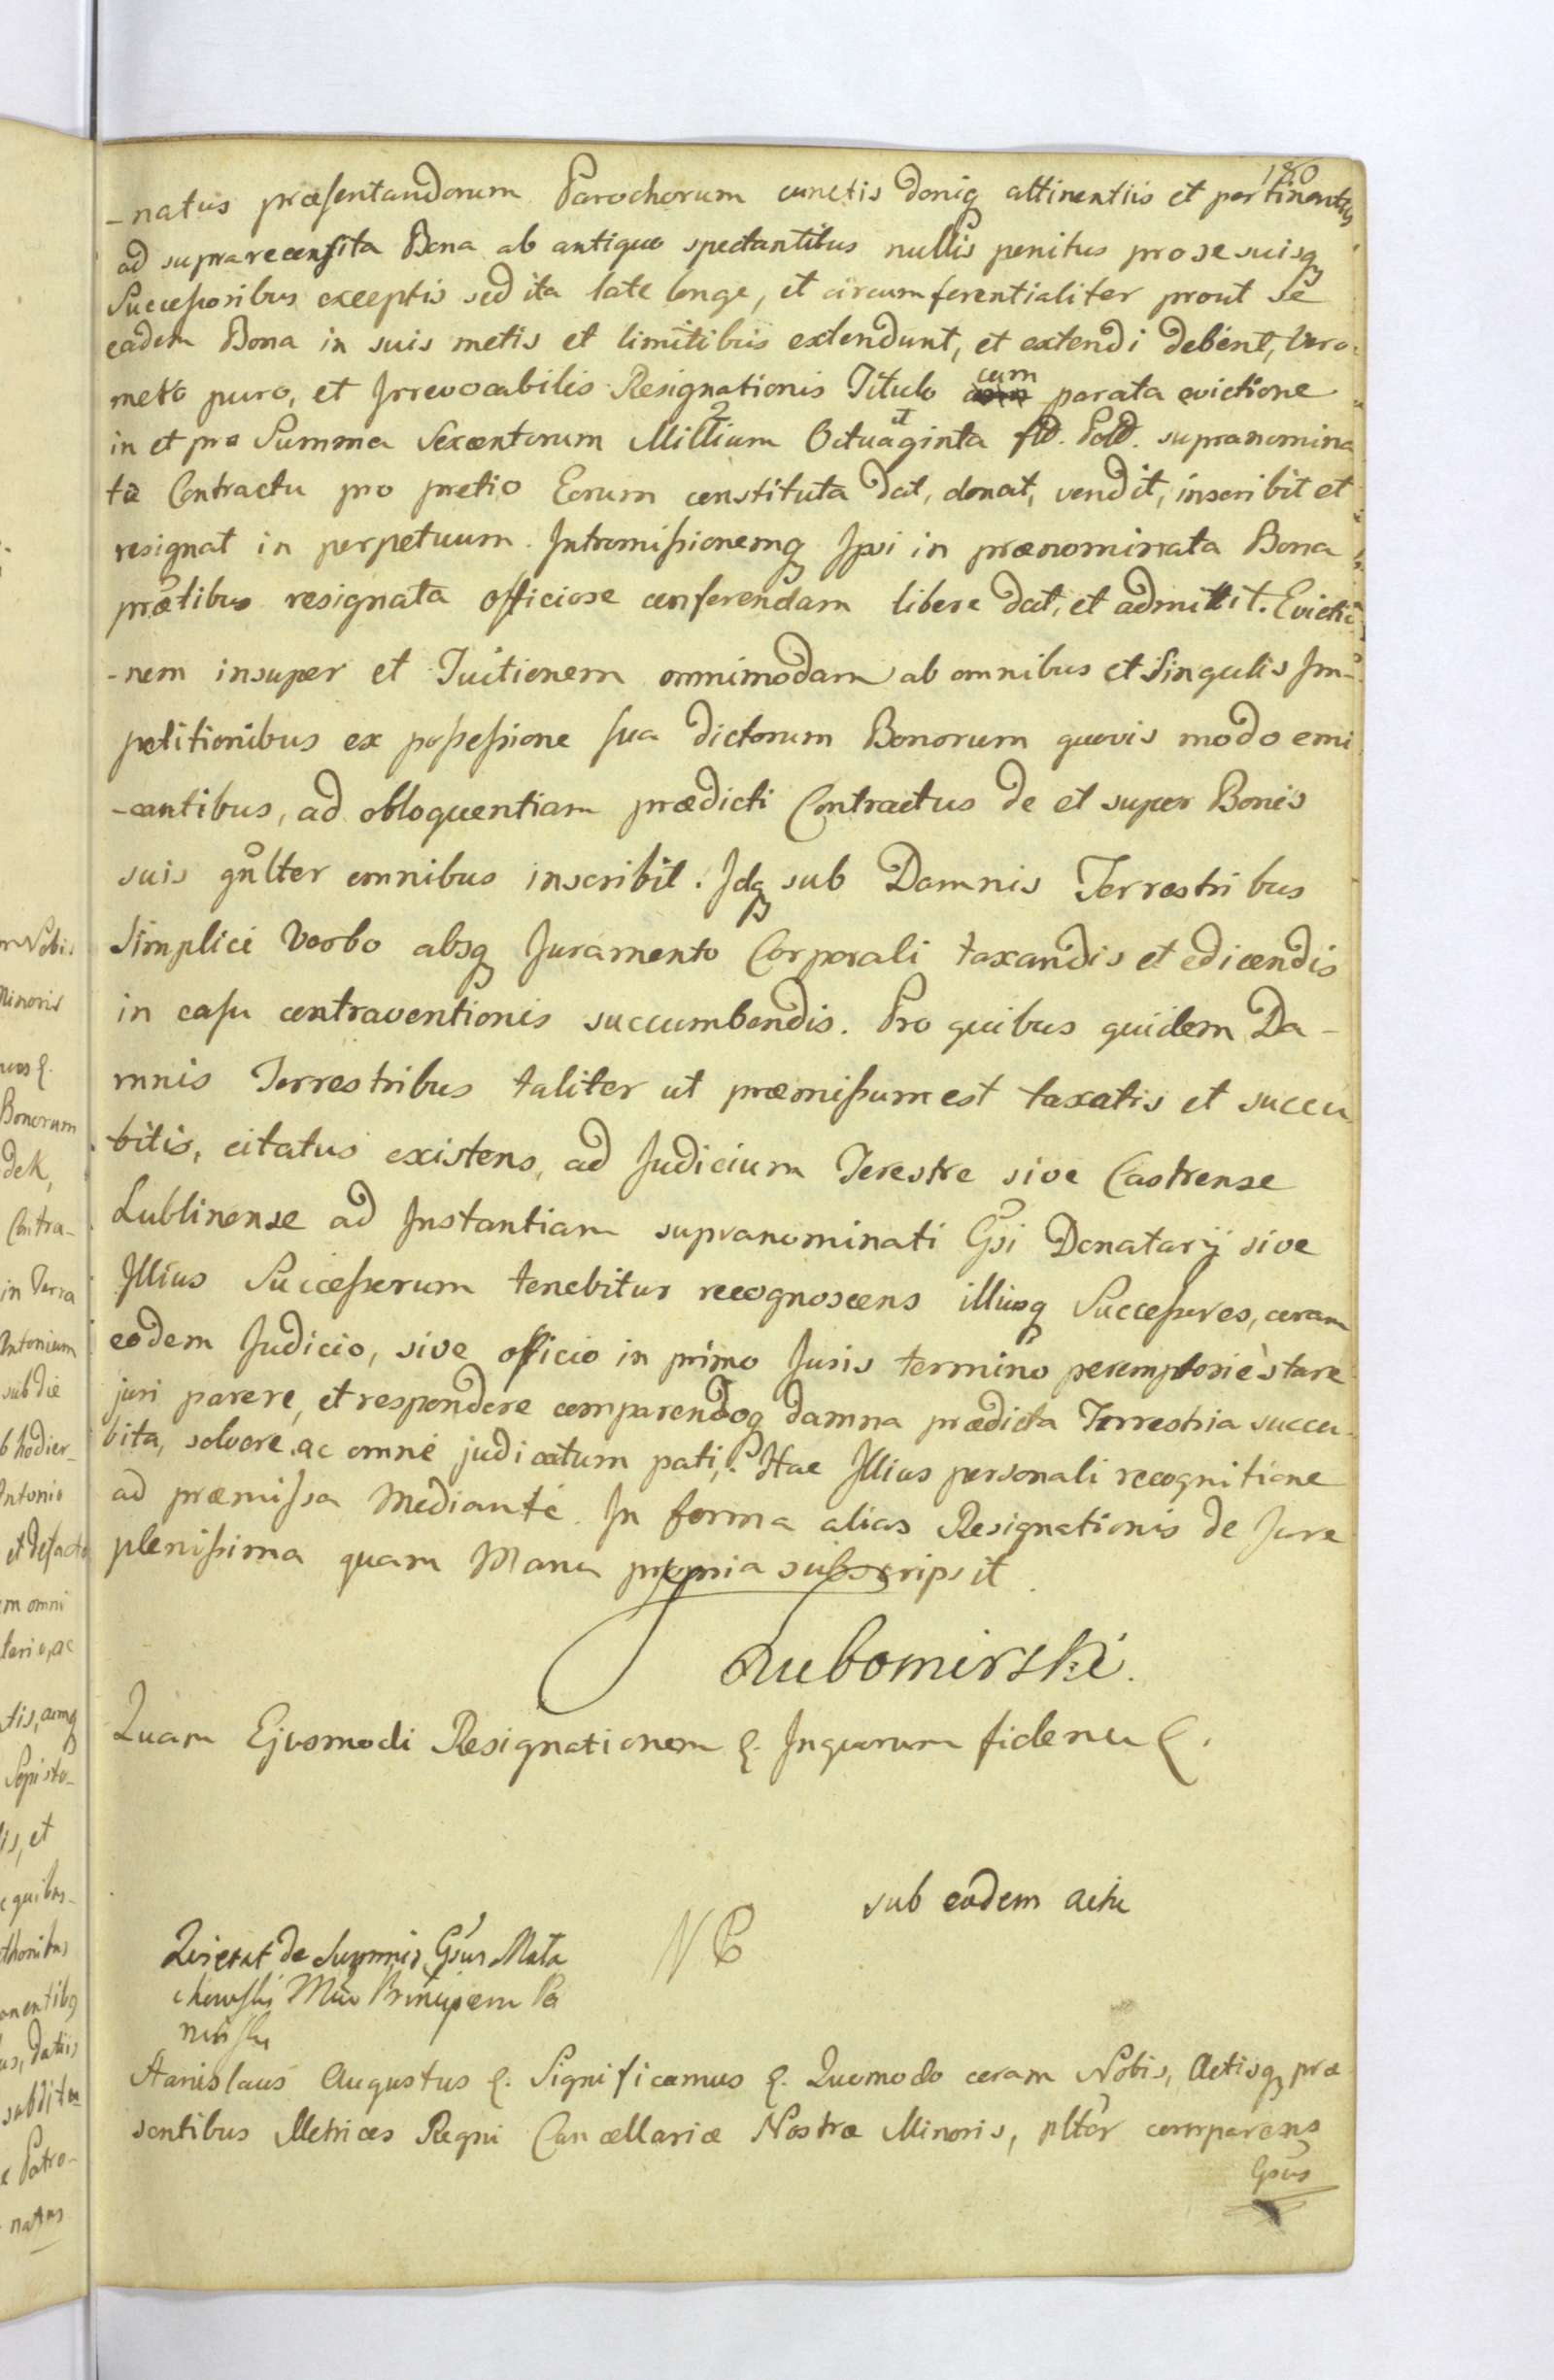 180
-natus præsentandorum Parochorum cunctis doniq attinentiis et pertinentiis
ad suprarecensita Bona ab antiquo spectantibus nullis penitus pro se suisq
Successoribus exceptis sed ita late longe, et circumferentialiter prout se
eadem Bona in suis metis et limitibus extendunt, et extendi debent, vero
mero puro, et Irrevocabilis Resignationis Titulo cum parata evictione
in et pro Summa Sexcentorum Millium Octuaginta fld. Pold. supranomina
to Contractu pro pretio Eorum constituta dat, donat, vendit, inscribit et
resignat in perpetuum. Intromissionemq Ipsi in prænominata Bona
præntibus resignata officiose conferendam libere dat, et admittit. Evictio
-nem insuper et Tuitionem omnimodam ab omnibus et Singulis Im-
petitionibus ex possessione sua dictorum Bonorum quovis modo emi
-cantibus, ad obloquentiam prædicti Contractus de et super Bonis
suis gnlter omnibus inscribit. Idq sub Damnis Terrestribus
Simplici Verbo absq Juramento Corporali taxandis et edicendis
in casu contraventionis succumbendis. Pro quibus quidem Da-
mnis Terrestribus taliter ut præmissum est taxatis et succu
bitis, citatus existens, ad Judicium Terestre sive Castrense
Lublinense ad Instantiam supranominati Gsi Donatarÿ sive
Illius Successorum tenebitur recognoscens illiusq Successores, coram
eodem Judicio, sive officio in primo Juris termino peremptorie stare
juri parere, et respondere comparendoq damna prædicta Terrestria succu-
bita, solvere ac omne judicatum pati,. Hac Illius personali recognitione
ad præmissa Mediante. In forma alias Resignationis de Jure
plenissima quam Manu propria subscripsit.
Lubomirski.
Quam Ejusmodi Resignationem &. Inquorum fidem &.
sub eodem actu
Quietat de Summis Gsus Mała
chowski
NP
Stanislaus Augustus &. Significamus &. Quomodo coram Nobis, Actisq præ
sentibus Metrices Regni Cancellariæ Nostræ Minoris, plter comparens
Gsus